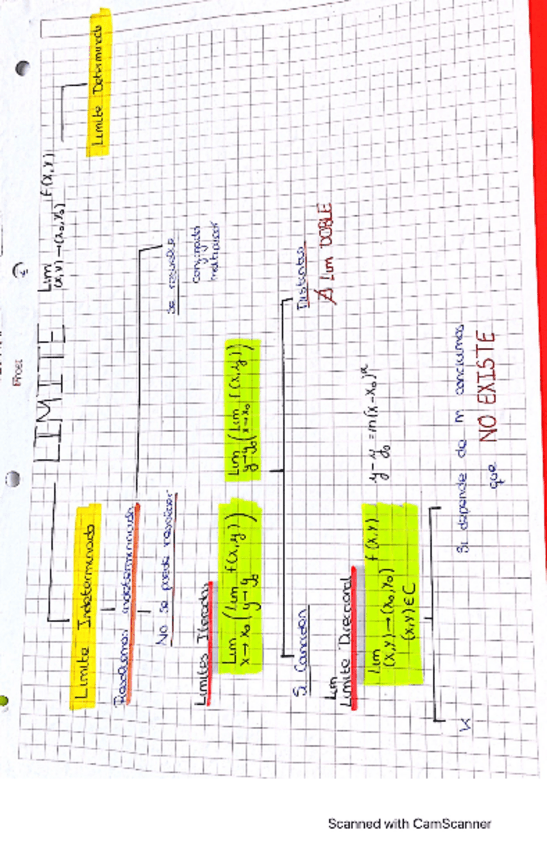 LIMITE
Lim f(x,y)
(x,y)→(x₀,y₀)
Limite Indeterminado
Limite Determinado
Resolvemos indeterminación
No se puede resolver
Se resuelve
conjugado
Limites Iterados
Lim (Lim f(x,y))
x→x₀ y→y₀
Lim (Lim f(x,y))
y→y₀ x→x₀
Si Coinciden
Distintos
∄ Lim DOBLE
Lim
Limite Direccional
Lim f(x,y)
(x,y)→(x₀,y₀)
(x,y)∈C
y-y₀ = m(x-x₀)
K
Si depende de m concluimos
que NO EXISTE
Scanned with CamScanner